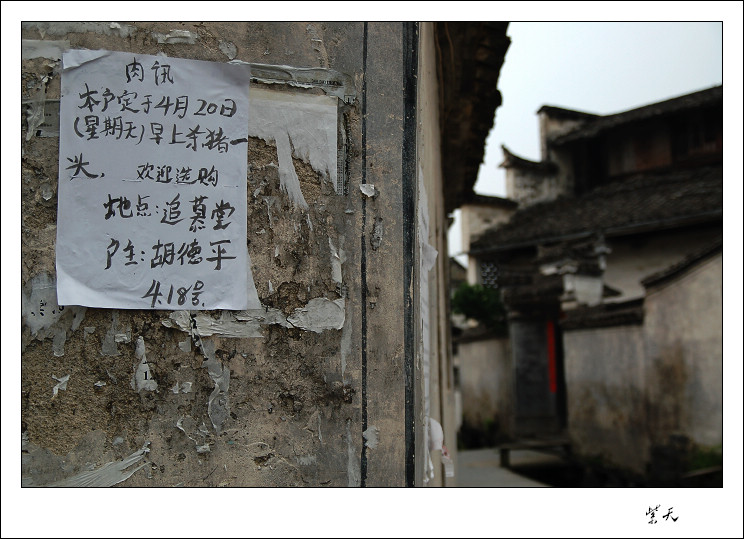 肉讯
本户定于4月20日
(星期天)早上杀猪一
头，欢迎选购
地点:追慕堂
户主:胡德平
4.18号.
紫天